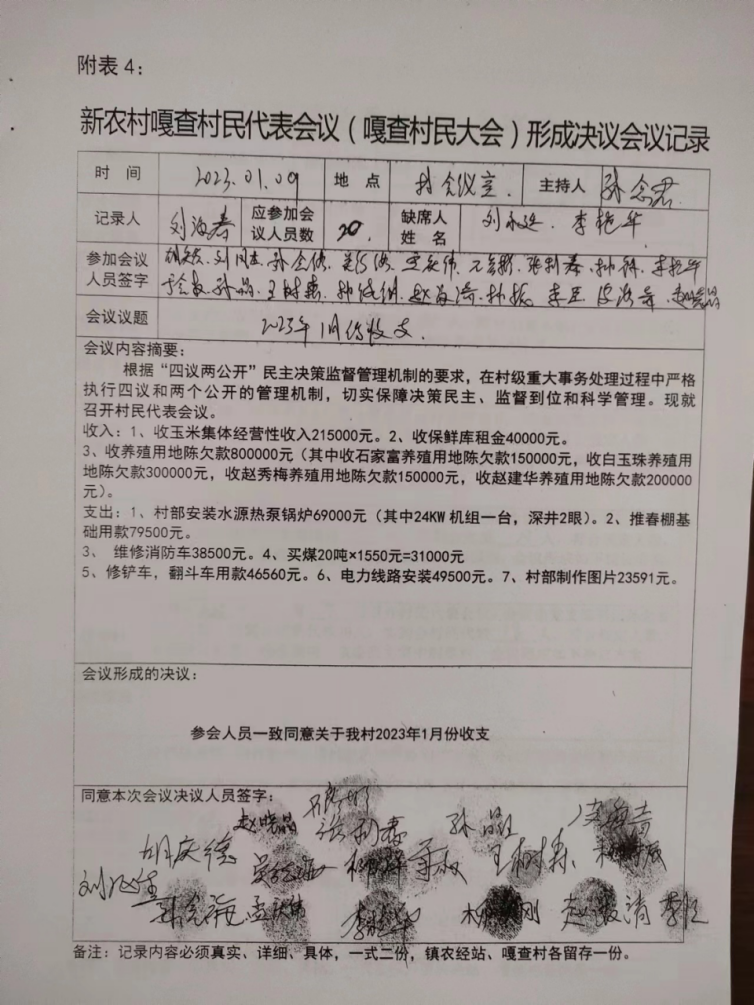 附表4：
新农村嘎查村民代表会议（嘎查村民大会）形成决议会议记录
时 间 2023.01.09 地 点 村会议室. 主持人 孙念君
记录人 刘海春 应参加会议人员数 20. 缺席人姓名 刘永廷. 李艳华
参加会议人员签字
王树森. 赵海清. 林振. 赵晓晶
会议议题 2023年1月份收支.
会议内容摘要：
根据“四议两公开”民主决策监督管理机制的要求，在村级重大事务处理过程中严格
执行四议和两个公开的管理机制，切实保障决策民主、监督到位和科学管理。现就
召开村民代表会议。
收入：1、收玉米集体经营性收入215000元。2、收保鲜库租金40000元。
3、收养殖用地陈欠款800000元（其中收石家富养殖用地陈欠款150000元，收白玉珠养殖用
地陈欠款300000元，收赵秀梅养殖用地陈欠款150000元，收赵建华养殖用地陈欠款200000
元）。
支出：1、村部安装水源热泵锅炉69000元（其中24KW机组一台，深井2眼）。2、推春棚基
础用款79500元。
3、 维修消防车38500元。4、买煤20吨×1550元=31000元
5、修铲车，翻斗车用款46560元。6、电力线路安装49500元。7、村部制作图片23591元。
会议形成的决议：
参会人员一致同意关于我村2023年1月份收支
同意本次会议决议人员签字：
赵晓晶 张利春 孙晶
胡庆德 王树森
孟庆伟 李艳华 赵海清
备注：记录内容必须真实、详细、具体，一式二份，镇农经站、嘎查村各留存一份。